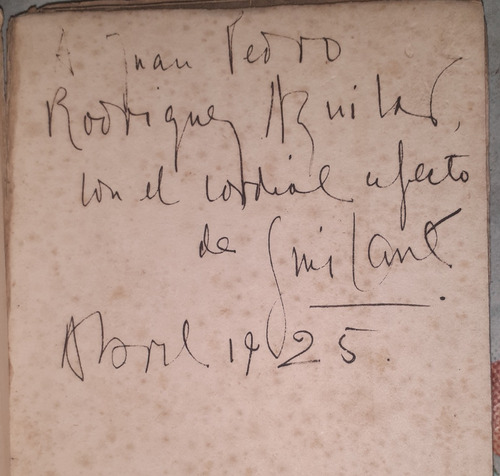 A Juan Pedro
Rodriguez Aguilar,
con el cordial afecto
de
Abril 1925.